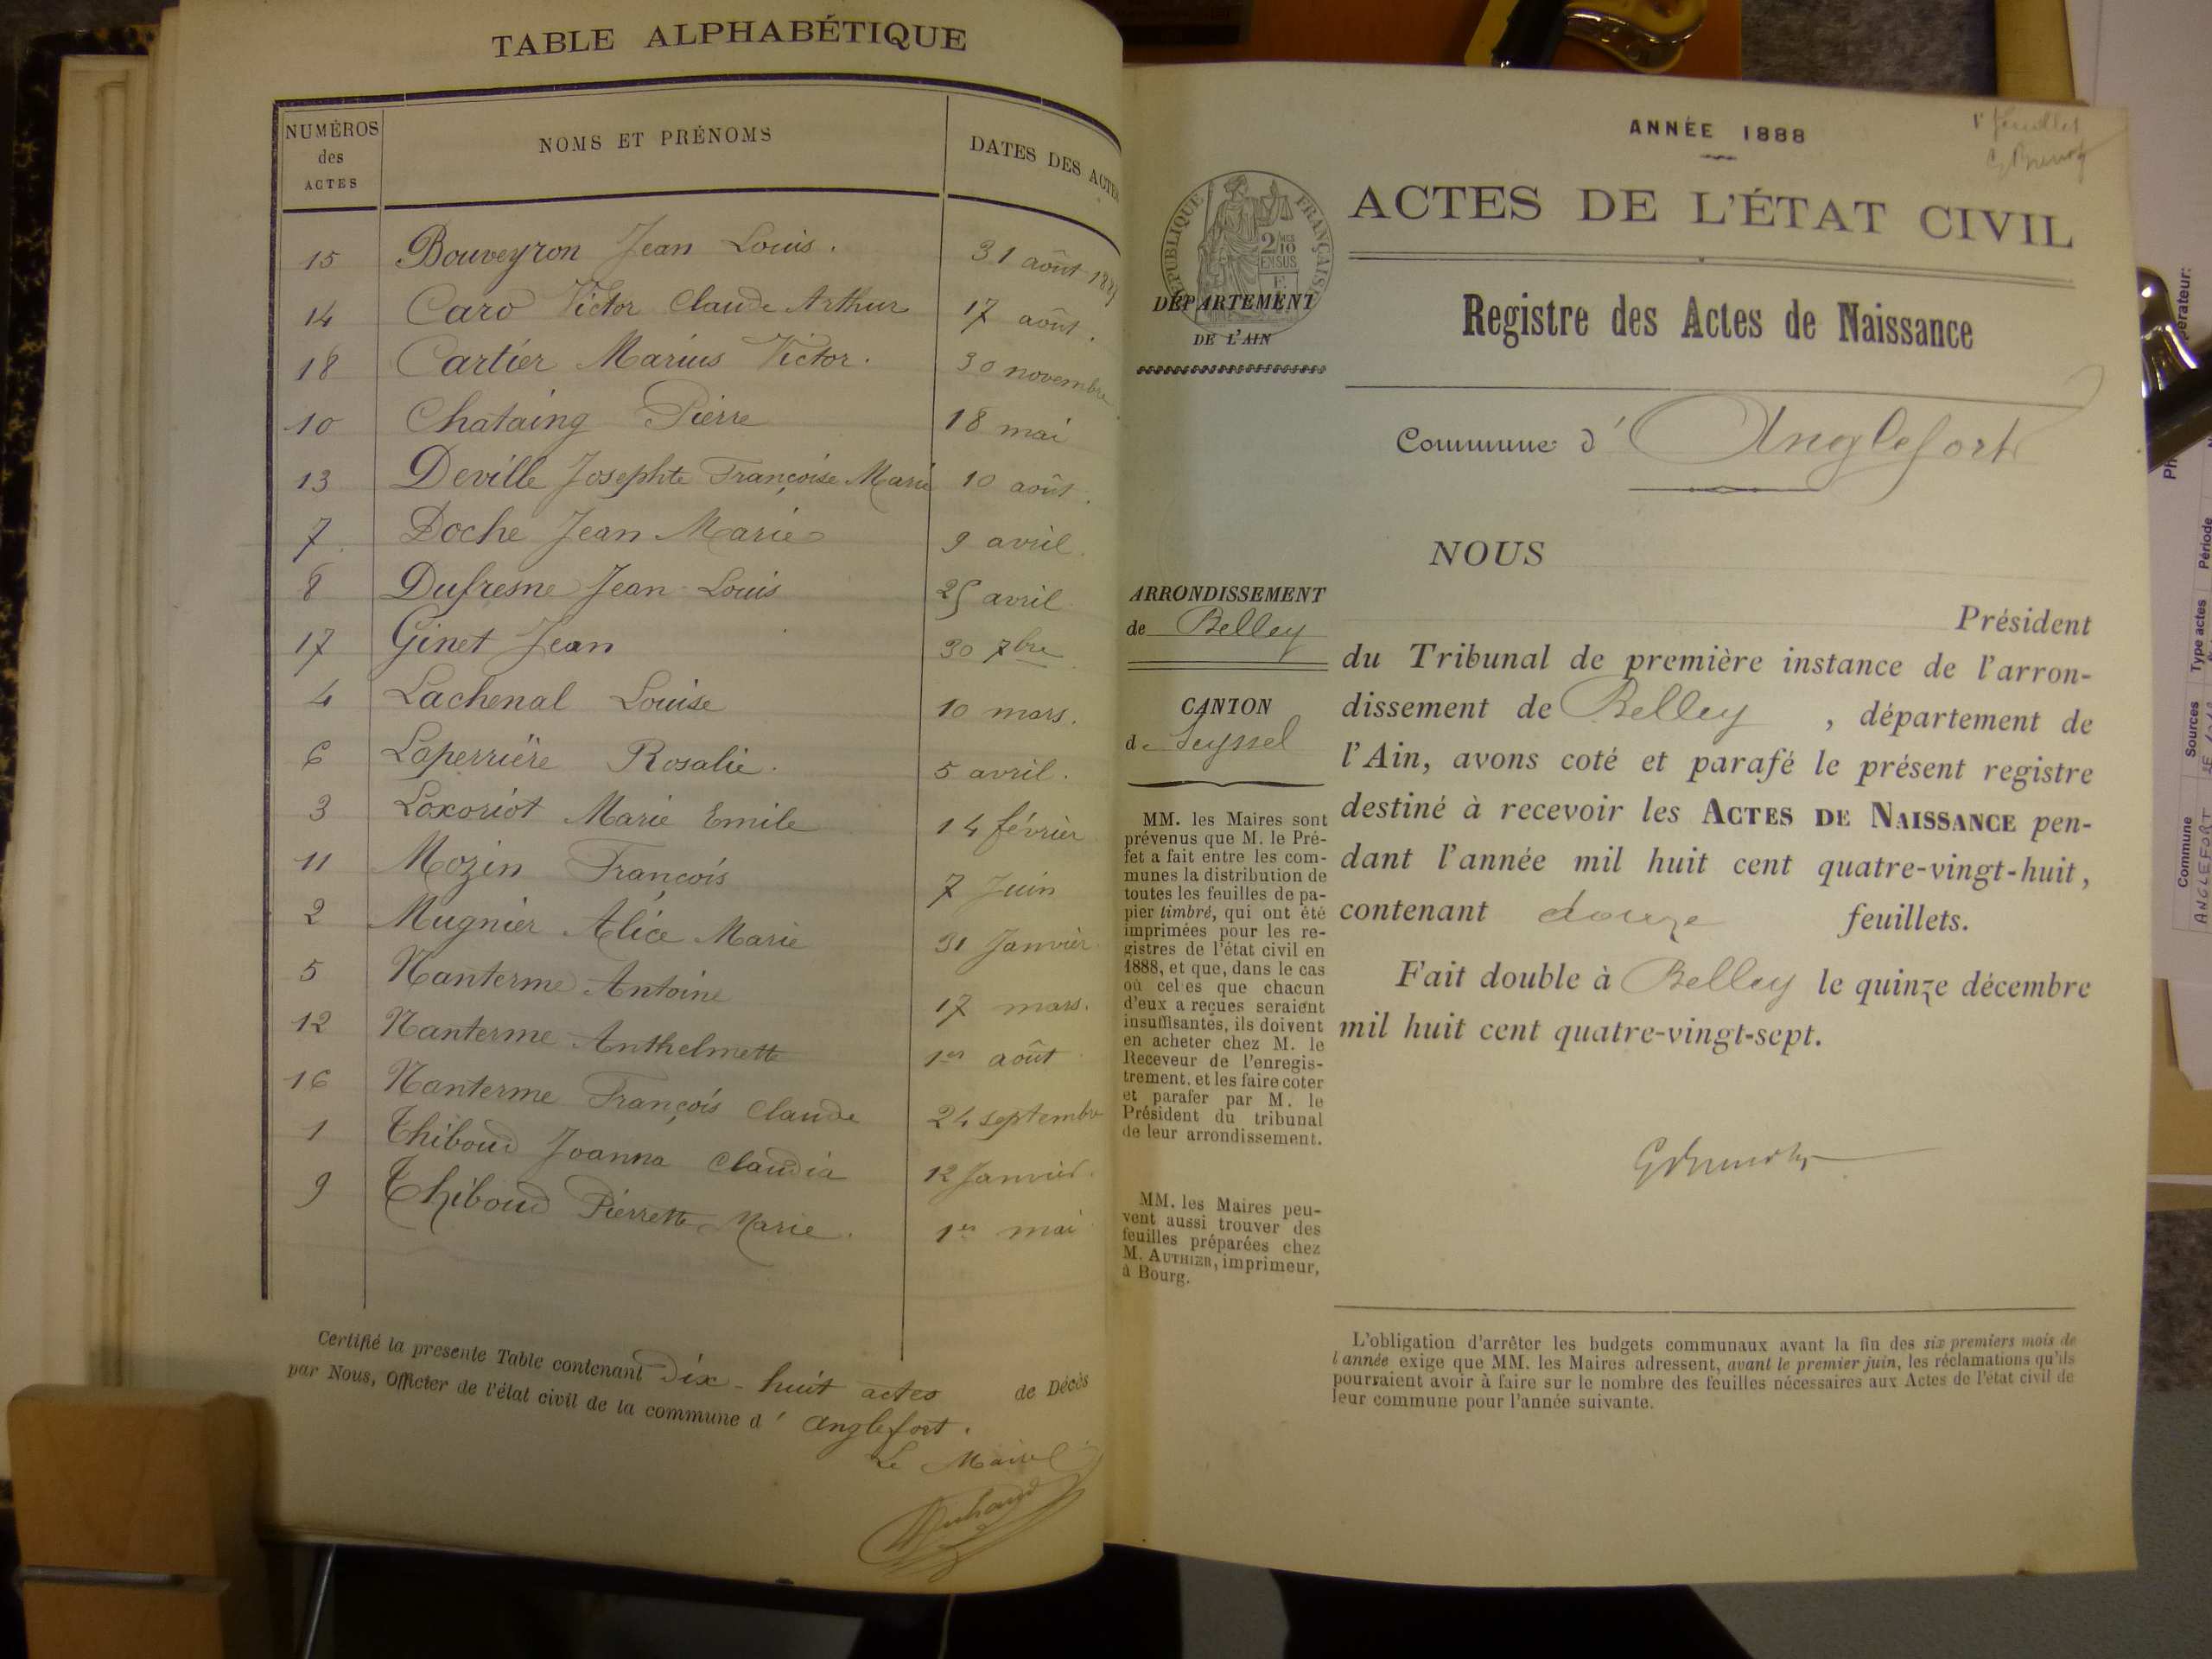 TABLE ALPHABÉTIQUE
NUMÉROS des ACTES NOMS ET PRÉNOMS DATES DES ACTES
15 Bouveyron Jean Louis. 31 août 1887
14 Caro Victor Claude Arthur 17 août.
18 Cartier Marius Victor. 30 novembre
10 Chataing Pierre 18 mai
13 Deville Josephte Françoise Marie 10 août.
7 Doche Jean Marie 9 avril.
8 Dufresne Jean-Louis 25 avril
17 Ginet Jean 30 7bre
4 Lachenal Louise 10 mars.
6 Laperrière Rosalie. 5 avril.
3 Loxoriot Marie Emile 14 février
11 Mozin François 7 Juin
2 Mugnier Alice Marie 31 Janvier
5 Nanterme Antoine 17 mars.
12 Nanterme Anthelmette 1er août
16 Nanterme François Claude 24 septembre
1 Thiboud Joanna Claudia 12 Janvier.
9 Thiboud Pierrette Marie. 1er mai
Certifié la presente Table contenant Dix-huit actes de Décès
par Nous, Officier de l'état civil de la commune d' Anglefort.
Le Maire
1er feuillet
ANNÉE 1888
ACTES DE L'ÉTAT CIVIL
RÉPUBLIQUE FRANÇAISE
2/10 EN SUS
DÉPARTEMENT
DE L'AIN
Registre des Actes de Naissance
Commune d' Anglefort
NOUS
Président
du Tribunal de première instance de l'arron-
dissement de Belley, département de
l'Ain, avons coté et parafé le présent registre
destiné à recevoir les ACTES DE NAISSANCE pen-
dant l'année mil huit cent quatre-vingt-huit,
contenant douze feuillets.
Fait double à Belley le quinze décembre
mil huit cent quatre-vingt-sept.
ARRONDISSEMENT
de Belley
CANTON
de Seyssel
MM. les Maires sont
prévenus que M. le Pré-
fet a fait entre les com-
munes la distribution de
toutes les feuilles de pa-
pier timbré, qui ont été
imprimées pour les re-
gistres de l'état civil en
1888, et que, dans le cas
où celles que chacun
d'eux a reçues seraient
insuffisantes, ils doivent
en acheter chez M. le
Receveur de l'enregis-
trement, et les faire coter
et parafer par M. le
Président du tribunal
de leur arrondissement.
MM. les Maires peu-
vent aussi trouver des
feuilles préparées chez
M. AUTHIER, imprimeur,
à Bourg.
L'obligation d'arrêter les budgets communaux avant la fin des six premiers mois de
l'année exige que MM. les Maires adressent, avant le premier juin, les réclamations qu'ils
pourraient avoir à faire sur le nombre des feuilles nécessaires aux Actes de l'état civil de
leur commune pour l'année suivante.
Commune Sources Type actes Période
ANGLEFORT